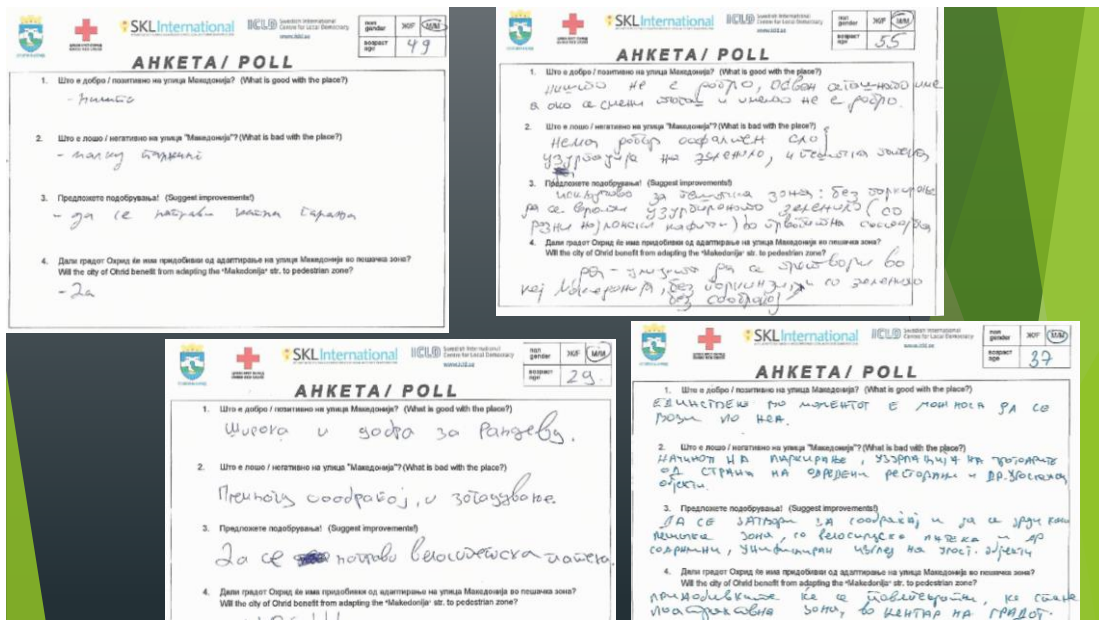 SKL International
ICLD Swedish International
Centre for Local Democracy
www.icld.se
пол
gender
Ж/F
М/M
возраст
age
49
АНКЕТА/ POLL
1. Што е добро / позитивно на улица Македонија? (What is good with the place?)
- ништо
2. Што е лошо / негативно на улица "Македонија"? (What is bad with the place?)
- паркинг
3. Предложете подобрувања! (Suggest improvements!)
- да се направи катна гаража
4. Дали градот Охрид ќе има придобивки од адаптирање на улица Македонија во пешачка зона?
Will the city of Ohrid benefit from adapting the "Makedonija" str. to pedestrian zone?
- Да
SKL International
ICLD Swedish International
Centre for Local Democracy
www.icld.se
пол
gender
Ж/F
М/M
возраст
age
55
АНКЕТА/ POLL
1. Што е добро / позитивно на улица Македонија? (What is good with the place?)
ништо не е добро, освен име
а ако се смени и името не е добро.
2. Што е лошо / негативно на улица "Македонија"? (What is bad with the place?)
Нема добар асфалтен слој
узурпација на зеленило, и
3. Предложете подобрувања! (Suggest improvements!)
зона: без паркирање
да се врати узурпираното зеленило (со
разни кафичи) во првобитна состојба
4. Дали градот Охрид ќе има придобивки од адаптирање на улица Македонија во пешачка зона?
Will the city of Ohrid benefit from adapting the "Makedonija" str. to pedestrian zone?
да - улицата да се претвори во
кеј Македонија, без паркинзи, со зеленило
без сообраќај
SKL International
ICLD Swedish International
Centre for Local Democracy
www.icld.se
пол
gender
Ж/F
М/M
возраст
age
29.
АНКЕТА/ POLL
1. Што е добро / позитивно на улица Македонија? (What is good with the place?)
Широка и добра за Рандеву.
2. Што е лошо / негативно на улица "Македонија"? (What is bad with the place?)
Премногу сообраќај, и загадување.
3. Предложете подобрувања! (Suggest improvements!)
Да се направи велосипедска патека.
4. Дали градот Охрид ќе има придобивки од адаптирање на улица Македонија во пешачка зона?
Will the city of Ohrid benefit from adapting the "Makedonija" str. to pedestrian zone?
SKL International
ICLD Swedish International
Centre for Local Democracy
www.icld.se
пол
gender
Ж/F
М/M
возраст
age
37
АНКЕТА/ POLL
1. Што е добро / позитивно на улица Македонија? (What is good with the place?)
ЕДИНСТВЕНО ВО МОМЕНТОТ Е МОЖНОСТА ДА СЕ
ВОЗИ ПО НЕА.
2. Што е лошо / негативно на улица "Македонија"? (What is bad with the place?)
НАЧИНОТ НА ПАРКИРАЊЕ, УЗУРПАЦИЈА НА ТРОТОАРИТЕ
ОД СТРАНА НА ОДРЕДЕНИ РЕСТОРАНИ И ДР. УГОСТ.
ОБЈЕКТИ.
3. Предложете подобрувања! (Suggest improvements!)
ДА СЕ ЗАТВОРИ ЗА СООБРАЌАЈ И ДА СЕ УРЕДИ КАКО
ПЕШАЧКА ЗОНА, СО ВЕЛОСИПЕДСКА ПАТЕКА И ДР
СОДРЖИНИ, УНИФИЦИРАН ИЗГЛЕД НА УГОСТ. ОБЈЕКТИ
4. Дали градот Охрид ќе има придобивки од адаптирање на улица Македонија во пешачка зона?
Will the city of Ohrid benefit from adapting the "Makedonija" str. to pedestrian zone?
ПРИДОБИВКИТЕ ЌЕ СЕ ПОВЕЌЕКРАТНИ, ЌЕ СТАНЕ
АТРАКТИВНА ЗОНА, ВО ЦЕНТАР НА ГРАДОТ.